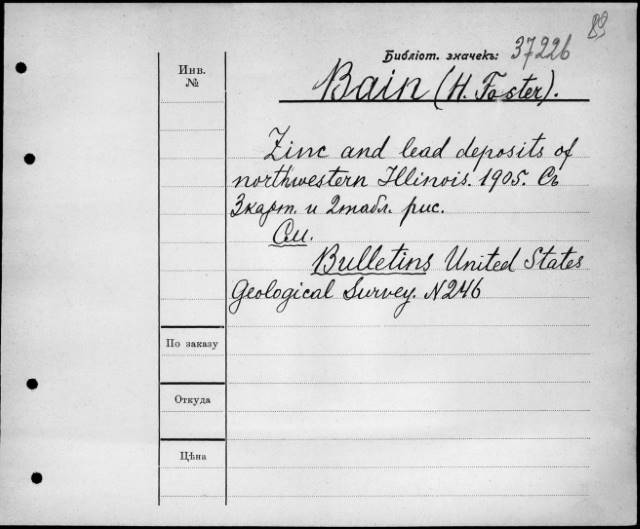 89
Библіот. значекъ: 37226
Инв.
№
Bain (H. Foster).
Zinc and lead deposits of
northwestern Illinois. 1905. Съ
3 карт. и 2 табл. рис.
См.
Bulletins United States
Geological Survey. N 246
По заказу
Откуда
Цѣна